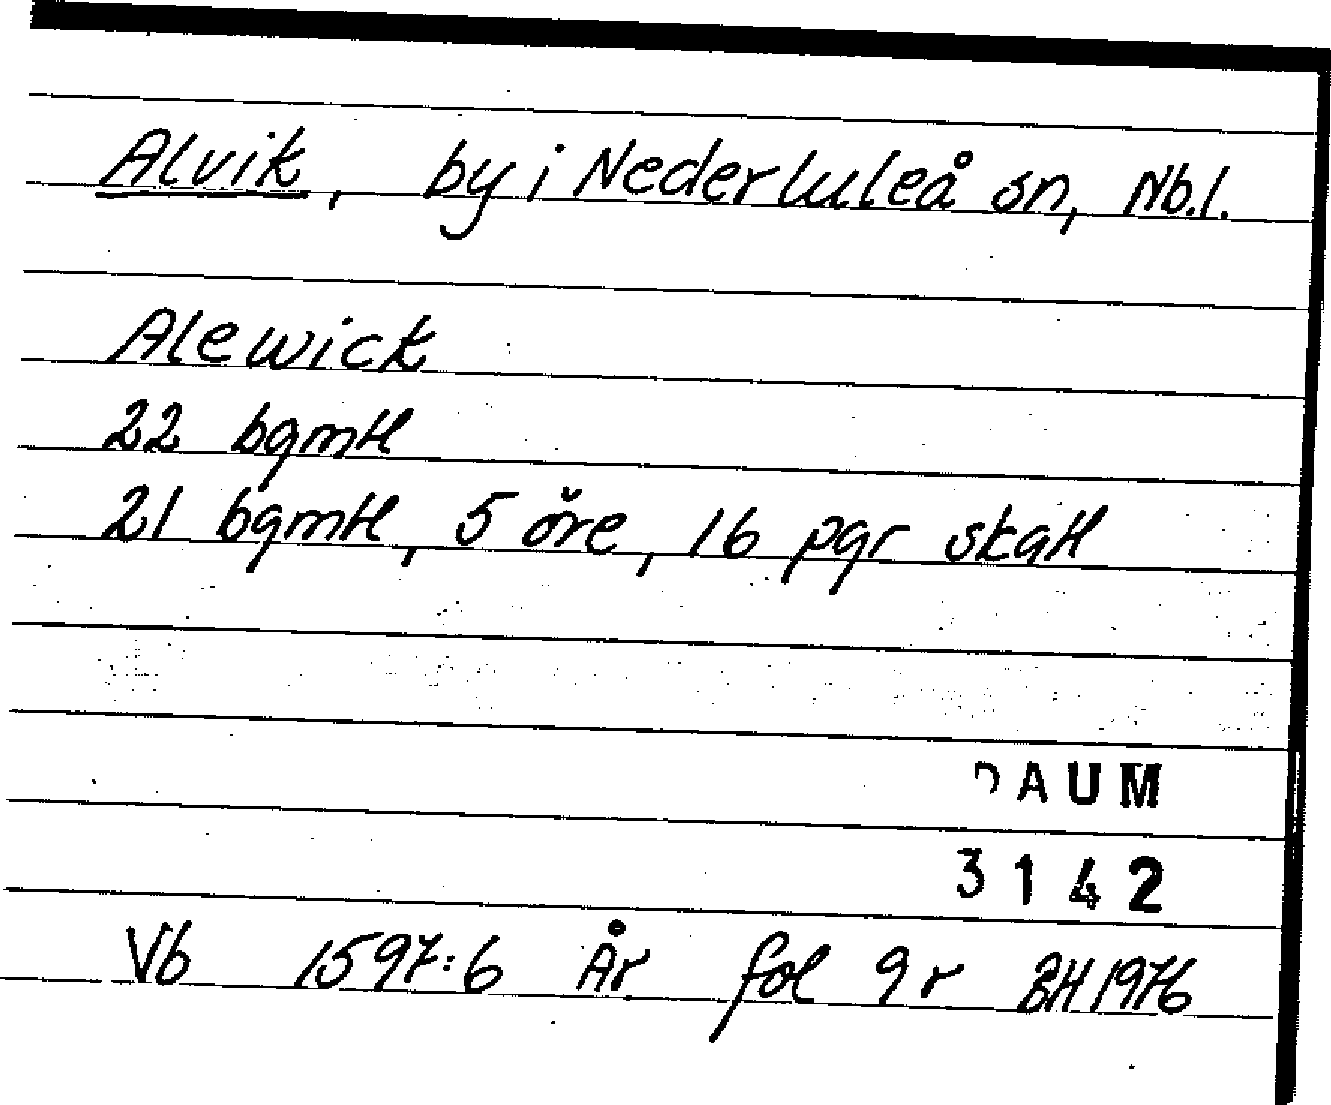 Alvik, by i Nederluleå sn, Nb.l.
Alewick
22 bgmtl
21 bgmtl, 5 öre, 16 pgr skatt
DAUM
3142
Vb 1597:6 År fol 9r BH 1976